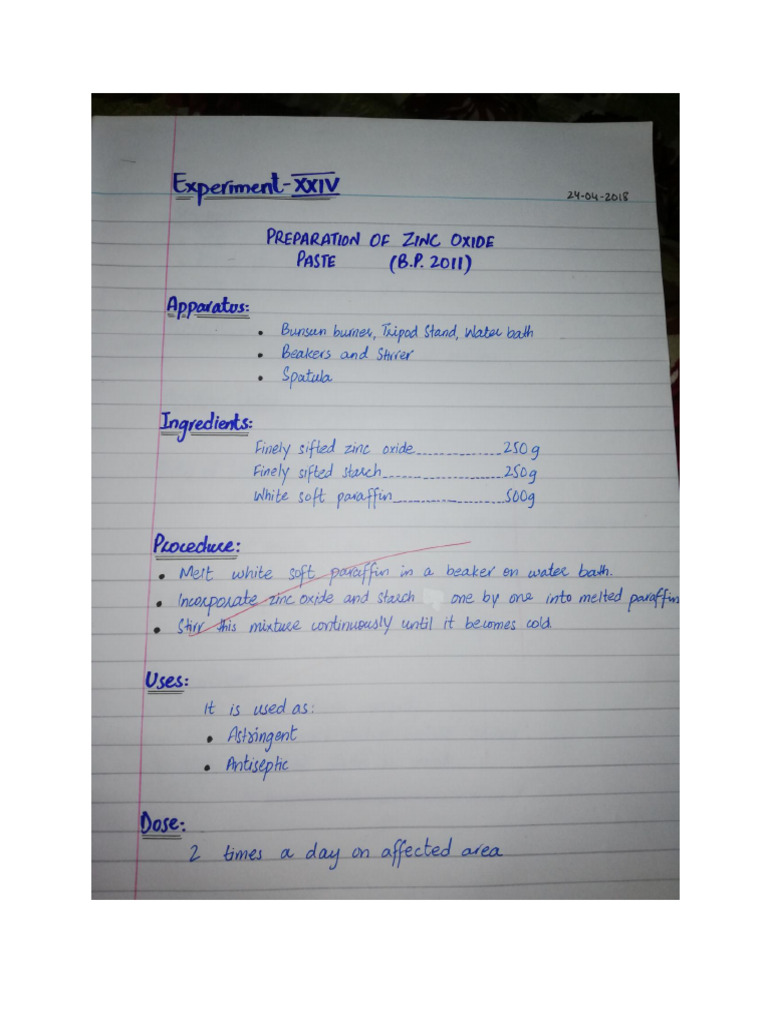 Experiment-XXIV
24-04-2018
PREPARATION OF ZINC OXIDE
PASTE (B.P. 2011)
Apparatus:
• Bunsun burner, Tripod Stand, Water bath
• Beakers and Stirrer
• Spatula
Ingredients:
Finely sifted zinc oxide...............250g
Finely sifted starch......................250g
White soft paraffin....................500g
Procedure:
• Melt white soft paraffin in a beaker on water bath.
• Incorporate zinc oxide and starch one by one into melted paraffin
• Stirr this mixture continuously until it becomes cold.
Uses:
It is used as:
• Astringent
• Antiseptic
Dose:
2 times a day on affected area